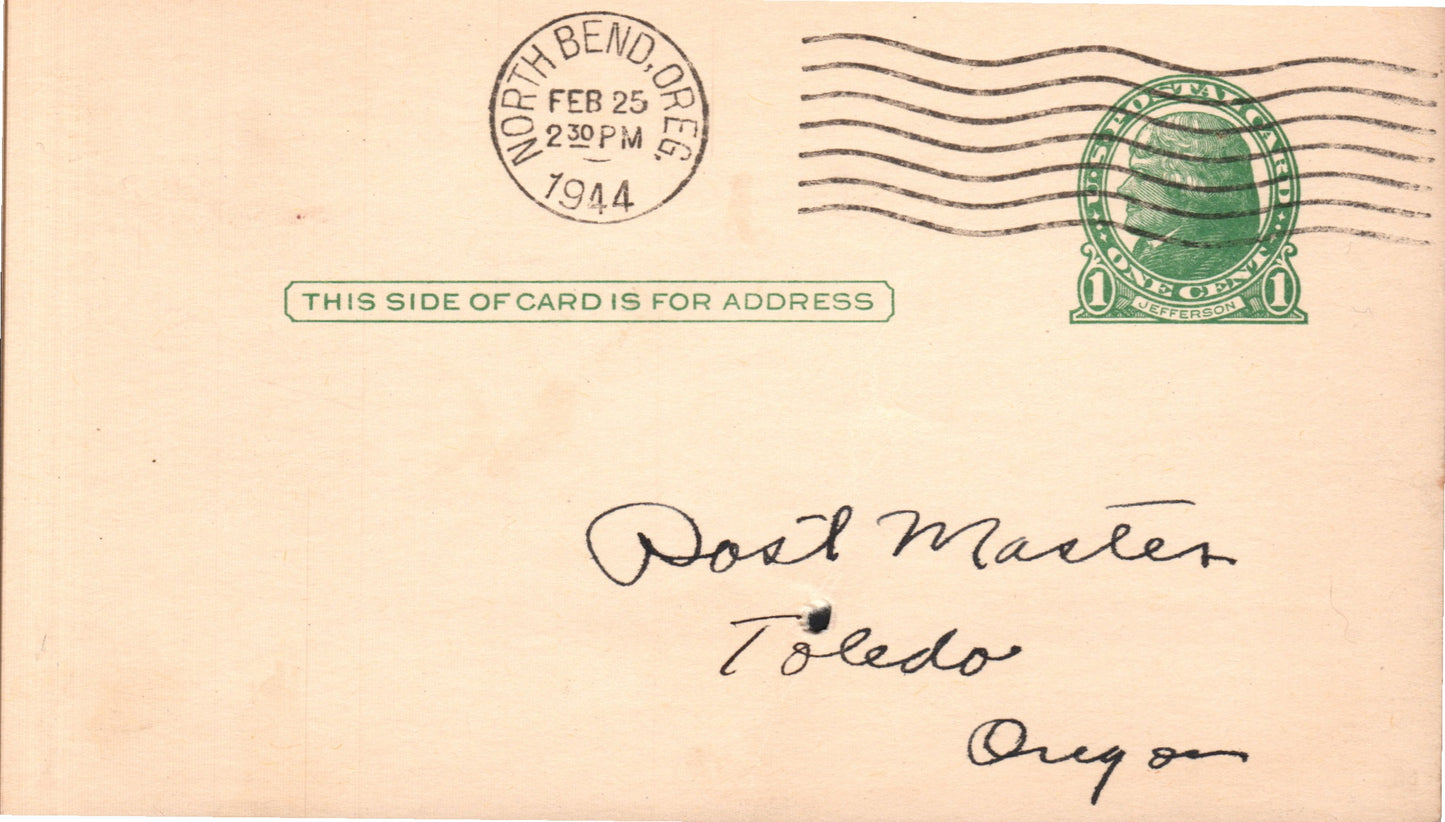 NORTH BEND, OREG.
FEB 25
2 30 PM
1944
U·S·POSTAL CARD
ONE CENT
1 JEFFERSON 1
THIS SIDE OF CARD IS FOR ADDRESS
Post Master
Toledo
Oregon